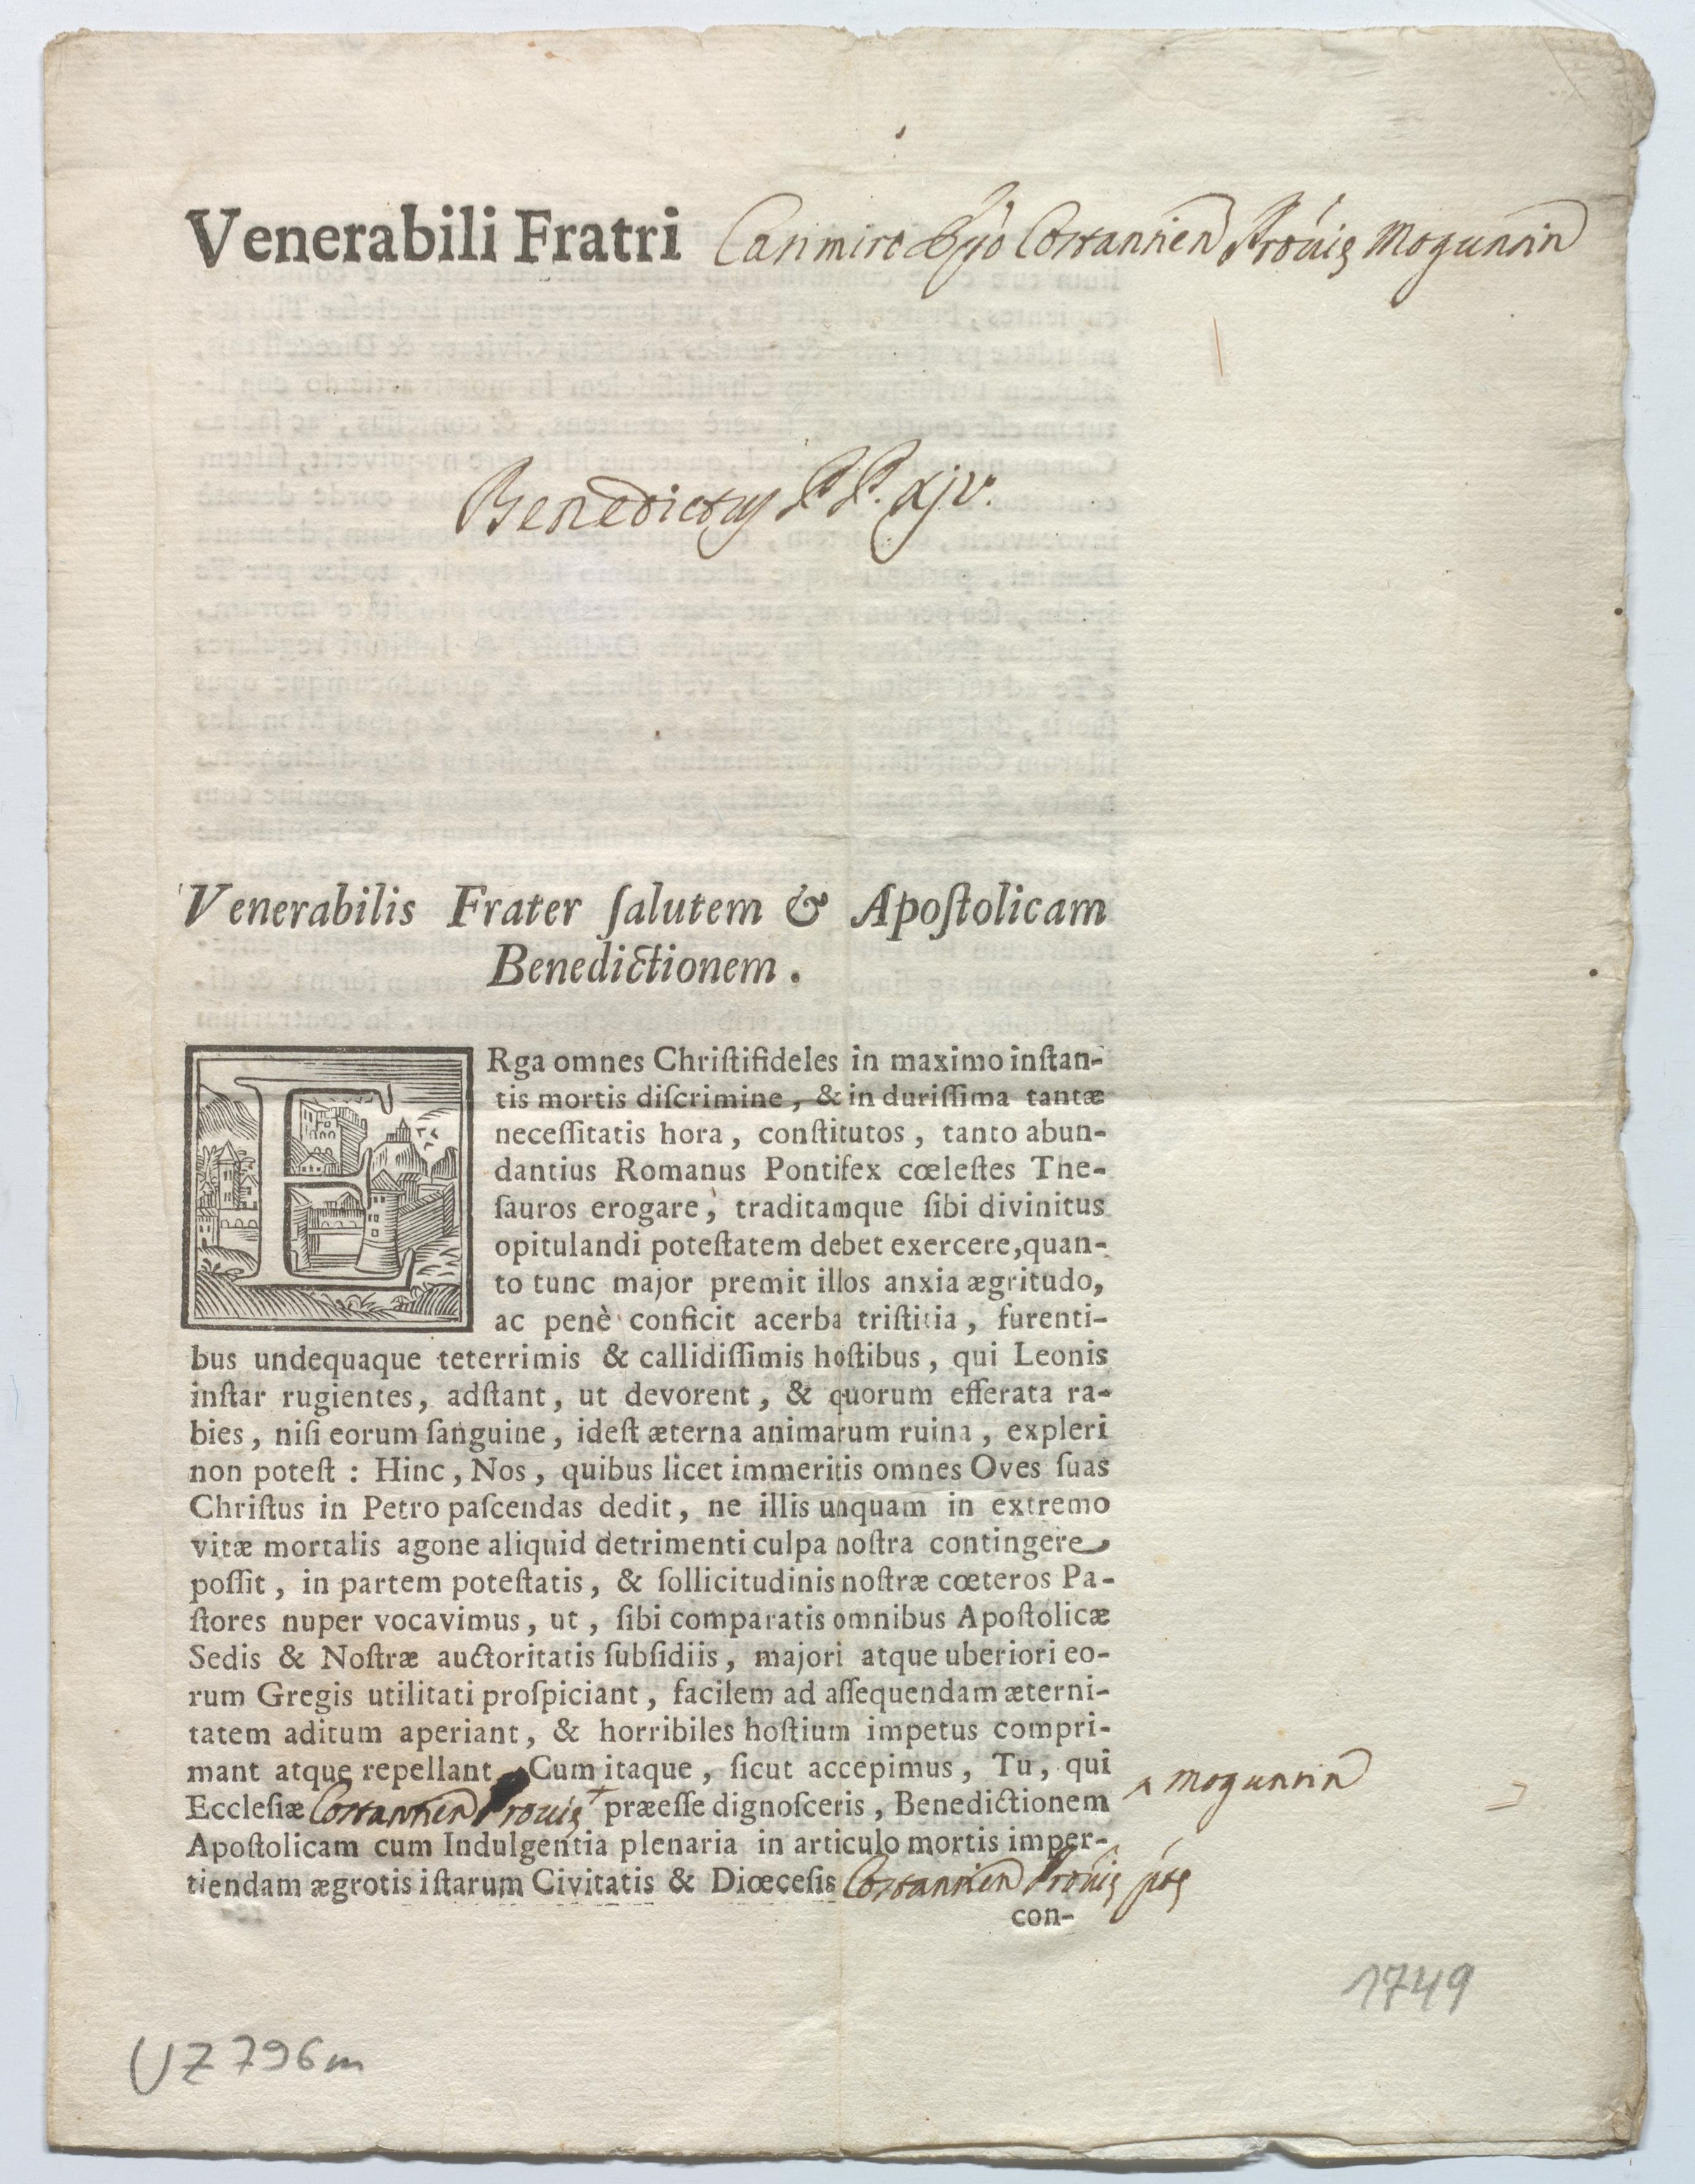 Venerabili Fratri Casimiro Epo Constantien Provie Moguntin
Benedictus PP. xjv.
Venerabilis Frater ſalutem & Apoſtolicam
Benedictionem.
ERga omnes Chriſtifideles in maximo inſtan-
tis mortis diſcrimine, & in duriſſima tantæ
neceſſitatis hora, conſtitutos, tanto abun-
dantius Romanus Pontifex cœleſtes The-
ſauros erogare, traditamque ſibi divinitus
opitulandi poteſtatem debet exercere, quan-
to tunc major premit illos anxia ægritudo,
ac penè conficit acerba triſtitia, furenti-
bus undequaque teterrimis & callidiſſimis hoſtibus, qui Leonis
inſtar rugientes, adſtant, ut devorent, & quorum efferata ra-
bies, niſi eorum ſanguine, ideſt æterna animarum ruina, expleri
non poteſt : Hinc, Nos, quibus licet immeritis omnes Oves ſuas
Chriſtus in Petro paſcendas dedit, ne illis unquam in extremo
vitæ mortalis agone aliquid detrimenti culpa noſtra contingere
poſſit, in partem poteſtatis, & ſollicitudinis noſtræ cœteros Pa-
ſtores nuper vocavimus, ut, ſibi comparatis omnibus Apoſtolicæ
Sedis & Noſtræ auctoritatis ſubſidiis, majori atque uberiori eo-
rum Gregis utilitati proſpiciant, facilem ad aſſequendam æterni-
tatem aditum aperiant, & horribiles hoſtium impetus compri-
mant atque repellant. Cum itaque, ſicut accepimus, Tu, qui
Eccleſiæ Constantien Provie + præeſſe dignoſceris, Benedictionem
^ Moguntin
Apoſtolicam cum Indulgentia plenaria in articulo mortis imper-
tiendam ægrotis iſtarum Civitatis & Diœceſis Constantien Provie
con-
1749
UZ 796m